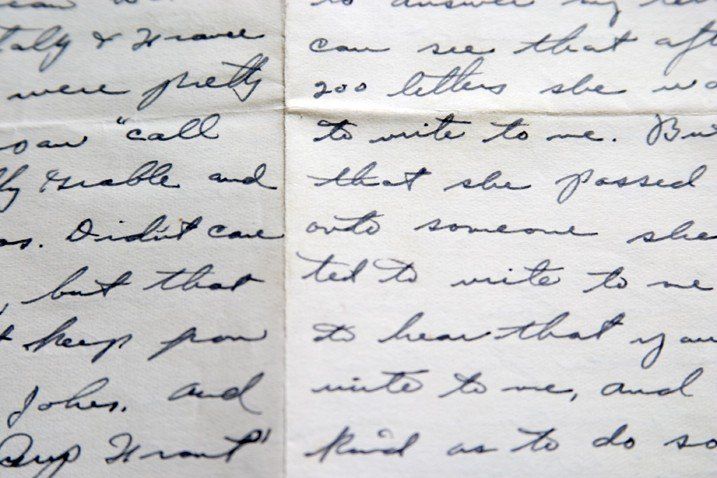 taly & France
were pretty
"call
ly Grable and
os. Didn't care
, but that
t keep
Jokes. and
Grant"
to answer my
can see that aft
200 letters she wa
to write to me. Bu
that she passed
onto someone she
ted to write to me
to hear that you
write to me, and
kind as to do so